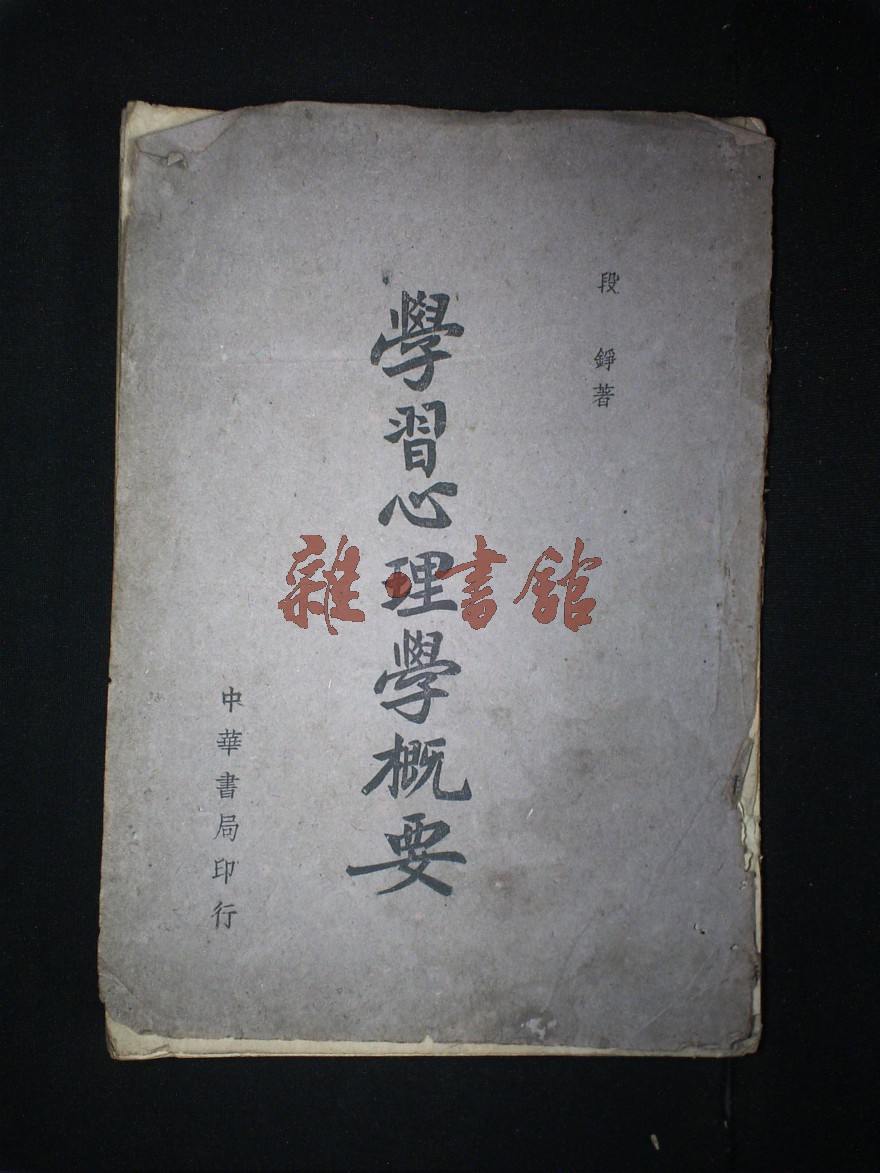 段錚著
學習心理學概要
中華書局印行
雜·書館